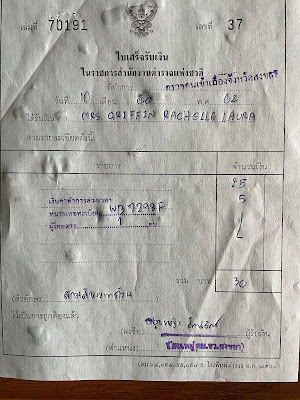 เล่มที่ 70191 เลขที่ 37
ใบเสร็จรับเงิน
ในราชการสำนักงานตำรวจแห่งชาติ
ที่ทำการ ตรวจคนเข้าเมืองจังหวัดสงขลา
วันที่ 10 เดือน พ.ศ. 62
ได้รับเงินจาก MRS. GRIFFIN RACHELLE LAURA
ตามรายละเอียดดังนี้
รายการ จำนวนเงิน
25
เงินค่าทำการล่วงเวลา 5
หมายเลขทะเบียน 7298F
ผู้โดยสาร คน
รวม บาท 30
(ตัวอักษร) สามสิบบาทถ้วน
ไว้เป็นการถูกต้องแล้ว
(ลงชื่อ) ผู้รับเงิน
(ตำแหน่ง)